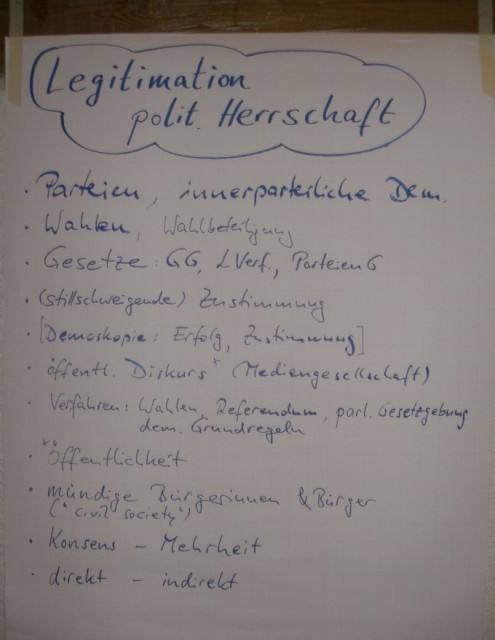 Legitimation
polit. Herrschaft
· Parteien, innerparteiliche Dem.
· Wahlen, Wahlbeteiligung
· Gesetze: GG, LVerf., ParteienG
· (stillschweigende) Zustimmung
· [Demoskopie: Erfolg, Zustimmung]
· öffentl. Diskurs* (Mediengesellschaft)
· Verfahren: Wahlen, Referendum, parl. Gesetzgebung
dem. Grundregeln
· *Öffentlichkeit
· mündige Bürgerinnen & Bürger
("civil society")
· Konsens – Mehrheit
· direkt – indirekt